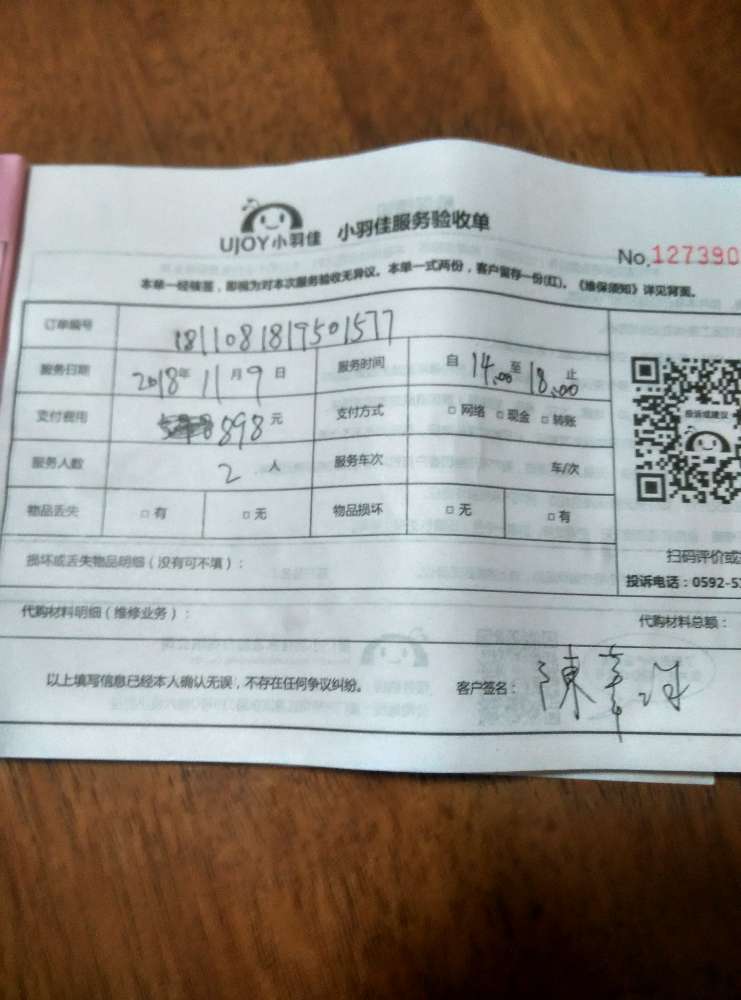 UJOY小羽佳 小羽佳服务验收单
No.127390
本单一经核签，即视为对本次服务验收无异议。本单一式两份，客户留存一份(红)。《维保须知》详见背面。
订单编号 1811081819501577
服务日期 2018年11月9日 服务时间 自14:00至18:00止
支付费用 898元 支付方式 □网络 □现金 □转账
投诉或建议
服务人数 2人 服务车次 车/次
物品丢失 □有 □无 物品损坏 □无 □有
扫码评价或
损坏或丢失物品明细（没有可不填）：
投诉电话：0592-5
代购材料明细（维修业务）： 代购材料总额：
以上填写信息已经本人确认无误，不存在任何争议纠纷。 客户签名：陳